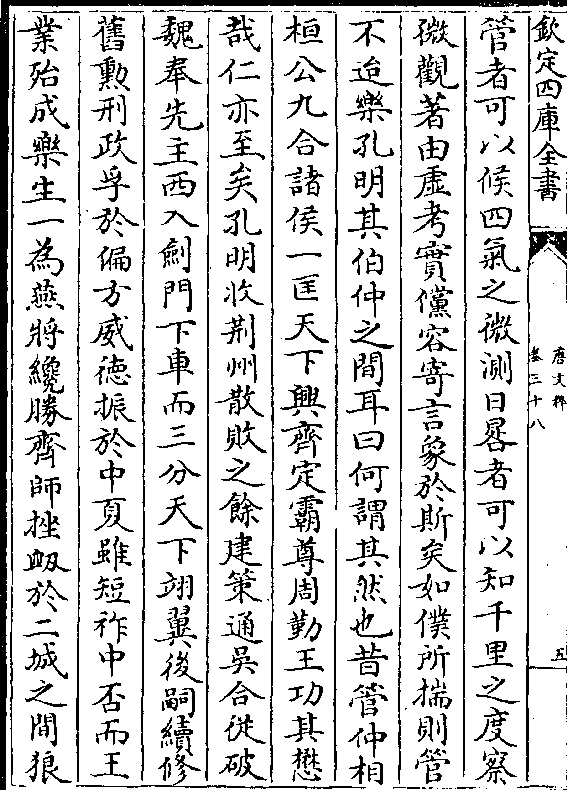 欽定四庫全書
唐文粹
卷三十八
五
管者可以候四氣之微測日晷者可以知千里之度察
微觀著由虛考實儻容寄言象於斯矣如僕所揣則管
不迨樂孔明其伯仲之間耳曰何謂其然也昔管仲相
桓公九合諸侯一匡天下興齊定霸尊周勤王功其懋
哉仁亦至矣孔明收荆州散敗之餘建策通吳合從破
魏奉先主西入劍門下車而三分天下翊翼後嗣續修
舊勲刑政孚於偏方威徳振於中夏雖短祚中否而王
業殆成樂生一為燕將纔勝齊師挫衂於二城之間狼